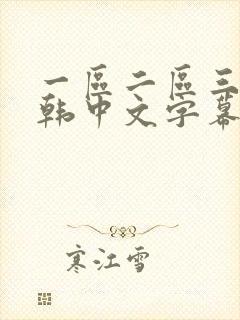 一區二區三
韩中文字幕
寒江雪